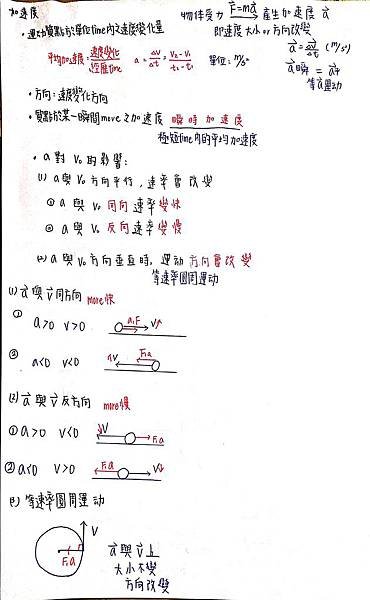 加速度
物体受力 F=ma 產生加速度 a
即速度大小 or 方向改變
a = Δv/Δt (m/s²)
a瞬 = a平
等a運動
・運動質點於單位time內之速度變化量
平均加速度 = 速度變化/經歷time a = Δv/Δt = V₂-V₁/t₂-t₁ 單位: m/s²
・方向: 速度變化方向
・質點於某一瞬間move之加速度 瞬時加速度
極短time內的平均加速度
・a 對 V₀ 的影響:
(1) a 與 V₀ 方向平行, 速率會改變
① a 與 V₀ 同向 速率變快
② a 與 V₀ 反向 速率變慢
(2) a 與 V₀ 方向垂直時, 運動方向會改變
等速率圓周運動
(1) a 與 v 同方向 more快
① a>0 v>0 a,F V↑
② a<0 v<0 V F,a
(2) a 與 v 反方向 more慢
① a>0 v<0 V F,a
② a<0 v>0 F,a V↓
等速率圓周運動
V
F,a
a 與 v ⊥
大小不變
方向改變